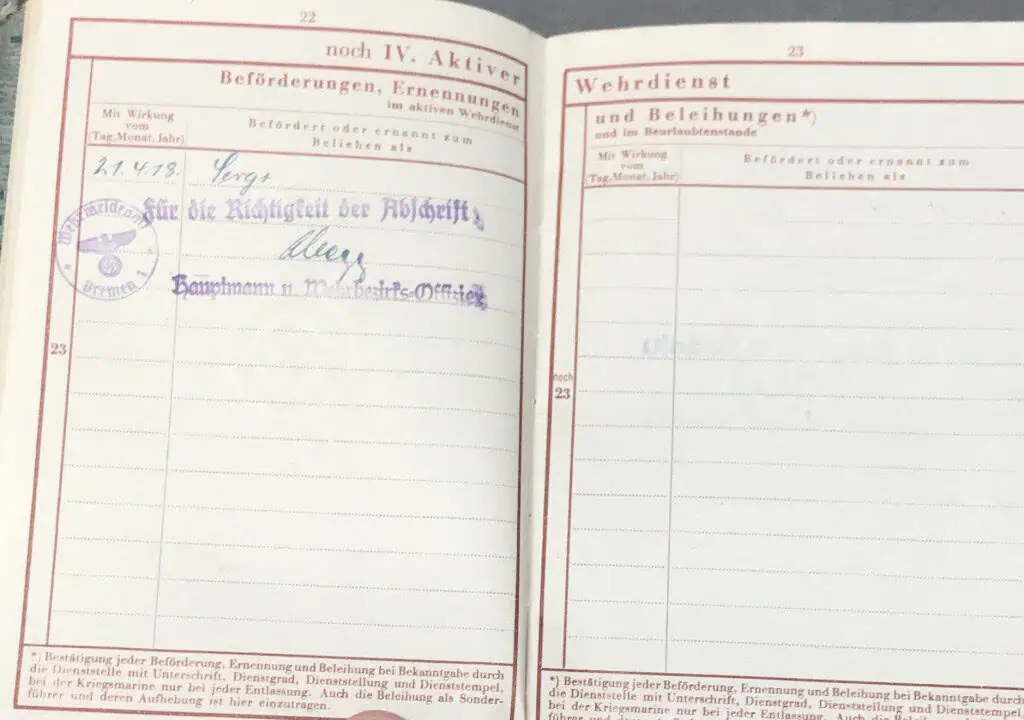 22
noch IV. Aktiver
Beförderungen, Ernennungen
im aktiven Wehrdienst
Mit Wirkung
vom
(Tag, Monat, Jahr)
Befördert oder ernannt zum
Beliehen als
21.4.18. Sergt
Für die Richtigkeit der Abschrift
Wehrmeldeamt
Bremen 1
Hauptmann u. Wehrbezirks-Offizier
23
*) Bestätigung jeder Beförderung, Ernennung und Beleihung bei Bekanntgabe durch
die Dienststelle mit Unterschrift, Dienstgrad, Dienststellung und Dienststempel,
bei der Kriegsmarine nur bei jeder Entlassung. Auch die Beleihung als Sonder-
führer und deren Aufhebung ist hier einzutragen.
23
Wehrdienst
und Beleihungen*)
und im Beurlaubtenstande
Mit Wirkung
vom
(Tag, Monat, Jahr)
Befördert oder ernannt zum
Beliehen als
noch
23
*) Bestätigung jeder Beförderung, Ernennung und Beleihung bei Bekanntgabe durch
die Dienststelle mit Unterschrift, Dienstgrad, Dienststellung und Dienststempel
bei der Kriegsmarine nur bei jeder Entlassung. Auch die